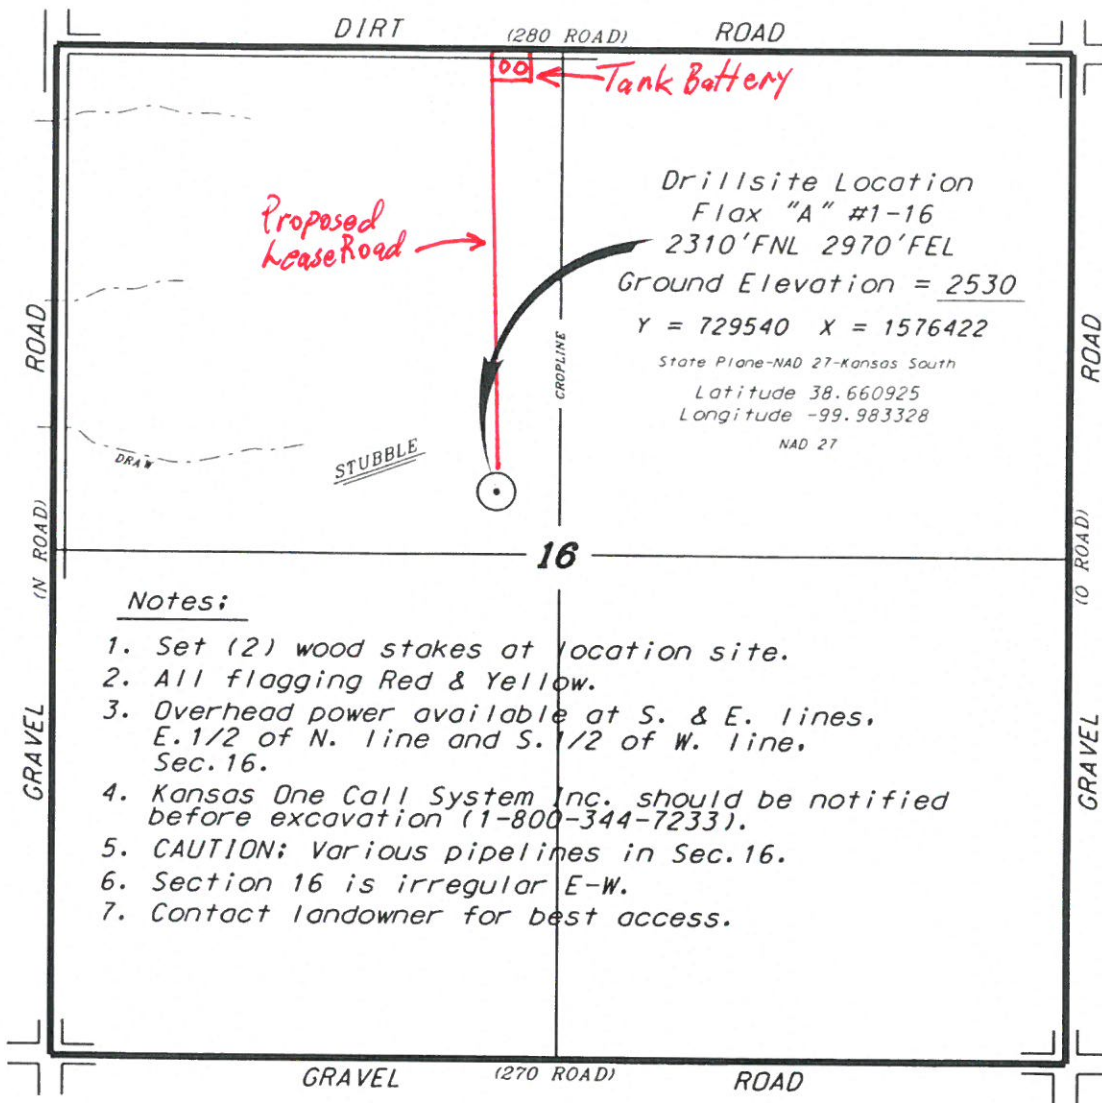 DIRT (280 ROAD) ROAD
Tank Battery
Proposed
Lease Road
Drillsite Location
Flax "A" #1-16
2310'FNL 2970'FEL
Ground Elevation = 2530
Y = 729540 X = 1576422
State Plane-NAD 27-Kansas South
Latitude 38.660925
Longitude -99.983328
NAD 27
CROPLINE
DRAW
STUBBLE
GRAVEL (N ROAD) ROAD
GRAVEL (O ROAD) ROAD
16
Notes:
1. Set (2) wood stakes at location site.
2. All flagging Red & Yellow.
3. Overhead power available at S. & E. lines,
E.1/2 of N. line and S.1/2 of W. line,
Sec.16.
4. Kansas One Call System Inc. should be notified
before excavation (1-800-344-7233).
5. CAUTION: Various pipelines in Sec.16.
6. Section 16 is irregular E-W.
7. Contact landowner for best access.
GRAVEL (270 ROAD) ROAD